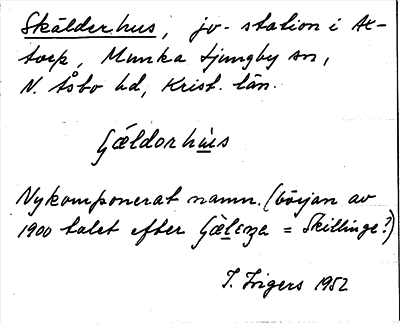 Skälderhus, jv-station i At-
torp, Munka Ljungby sn,
N. Åsbo hd, Krist. län.
Gældorhùis
Nykomponerat namn. (början av
1900 talet efter Gæ̀lɛŋa = Skillinge?)
I. Ingers 1952